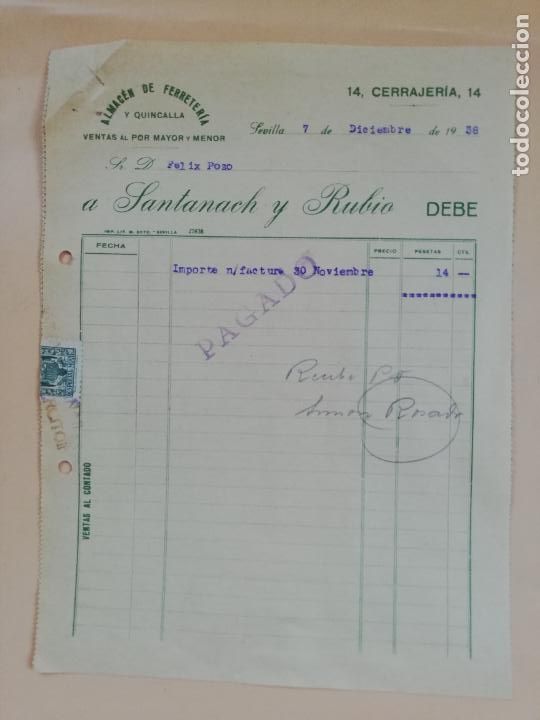 ALMACÉN DE FERRETERÍA
Y QUINCALLA
VENTAS AL POR MAYOR Y MENOR
14, CERRAJERÍA, 14
Sevilla 7 de Diciembre de 1938
Sr. D. Felix Pozo
a Santanach y Rubio DEBE
IMP. LIT. M. SOTO.-SEVILLA
FECHA PRECIO PESETAS CTS.
Importe n/factura 30 Noviembre 14 —
PAGADO
Recibo
Simon Rosado
VENTAS AL CONTADO
todocoleccion.net